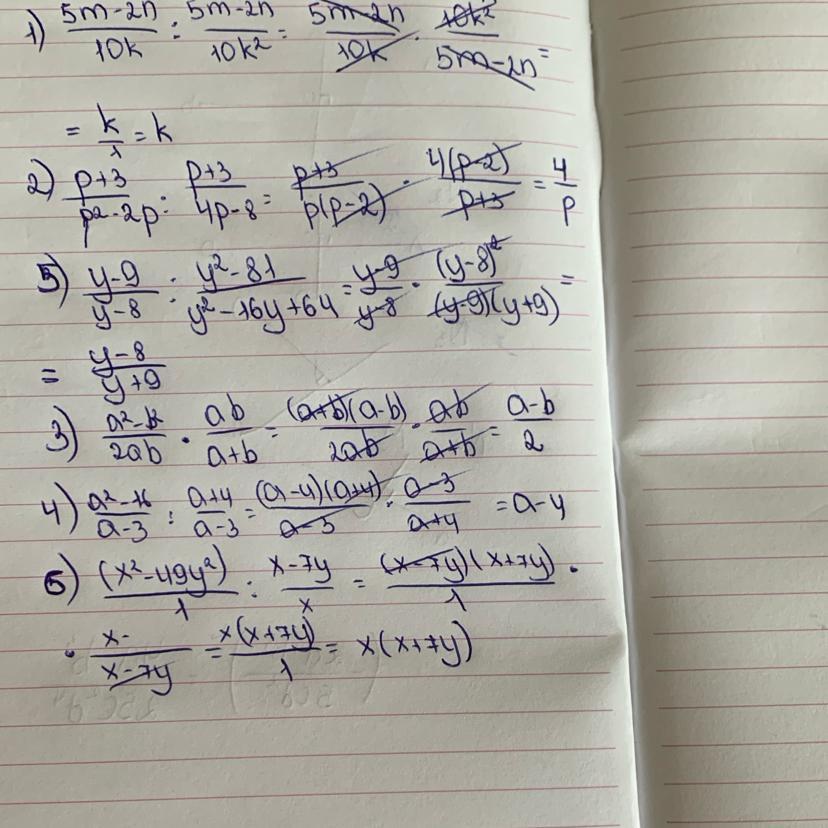 1) (5m-2n)/(10k) : (5m-2n)/(10k²) = (5m-2n)/(10k) · (10k²)/(5m-2n) =
= k/1 = k
2) (p+3)/(p²-2p) : (p+3)/(4p-8) = (p+3)/(p(p-2)) · (4(p-2))/(p+3) = 4/p
5) (y-9)/(y-8) : (y²-81)/(y²-16y+64) = (y-9)/(y-8) · (y-8)²/((y-9)(y+9)) =
= (y-8)/(y+9)
3) (a²-b²)/(2ab) · (ab)/(a+b) = ((a+b)(a-b))/(2ab) · (ab)/(a+b) = (a-b)/2
4) (a²-16)/(a-3) : (a+4)/(a-3) = ((a-4)(a+4))/(a-3) · (a-3)/(a+4) = a-4
6) (x²-49y²)/1 : (x-7y)/x = ((x-7y)(x+7y))/1 ·
· (x-)/(x-7y) = (x(x+7y))/1 = x(x+7y)